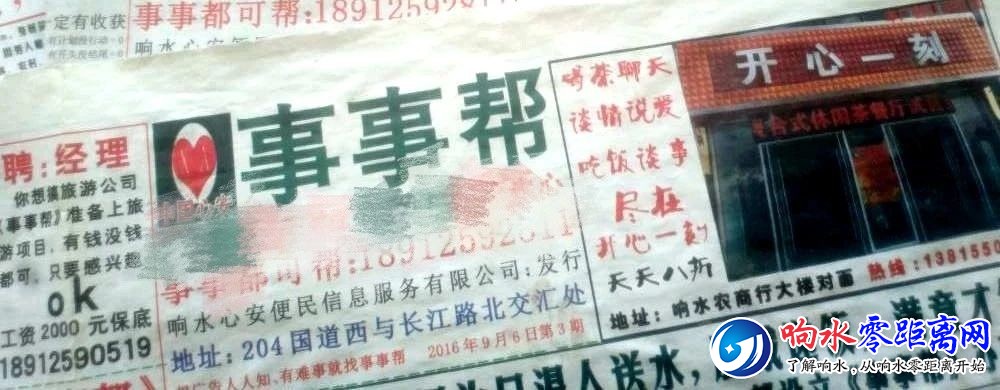 定有收获
事事都可帮:18912592
响水心安
聘:经理
你想搞旅游公司
《事事帮》准备上旅
游项目,有钱没钱
都可,只要感兴趣
ok
工资2000元保底
18912590519
事事帮
事事都可帮:18912592311
响水心安便民信息服务有限公司:发行
地址:204国道西与长江路北交汇处
广告人人知、有难事就找事事帮 2016年9月6日第3期
喝茶聊天
谈情说爱
吃饭谈事
尽在
开心一刻
天天八折
开心一刻
台式休闲茶餐厅
地址:响水农商行大楼对面 热线:1381550
人送水
满意才
响水零距离网
了解响水,从响水零距离开始